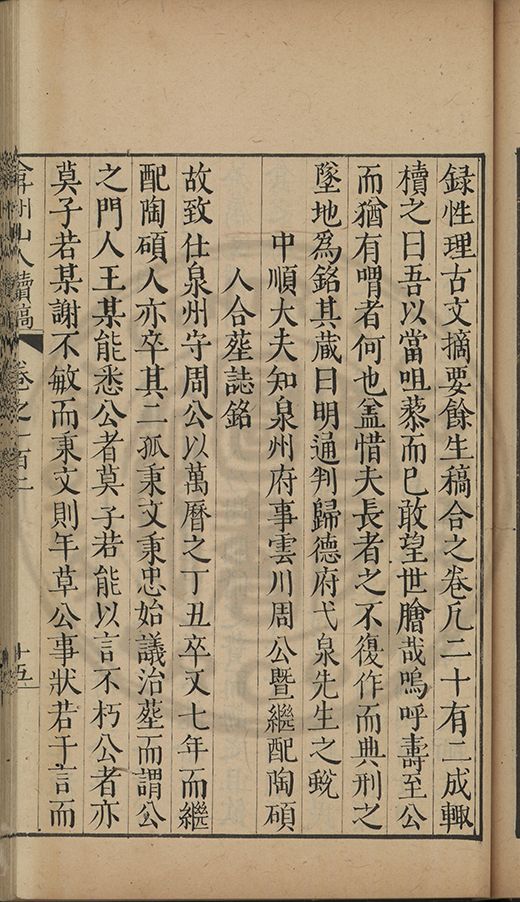 録性理古文摘要餘生稿合之卷凡二十有二成輙
櫝之曰吾以當咀藜而已敢望世膾哉嗚呼壽至公
而猶有喟者何也盖惜夫長者之不復作而典刑之
墜地為銘其蔵曰明通判歸德府弋泉先生之蛻
中順大夫知泉州府事雲川周公暨繼配陶碩
人合塟誌銘
故致仕泉州守周公以萬曆之丁丑卒又七年而繼
配陶碩人亦卒其二孤秉文秉忠始議治塟而謂公
之門人王某能悉公者莫子若能以言不朽公者亦
莫子若某謝不敏而秉文則手草公事狀若干言而
弇州山人續稿 卷之一百二 十五